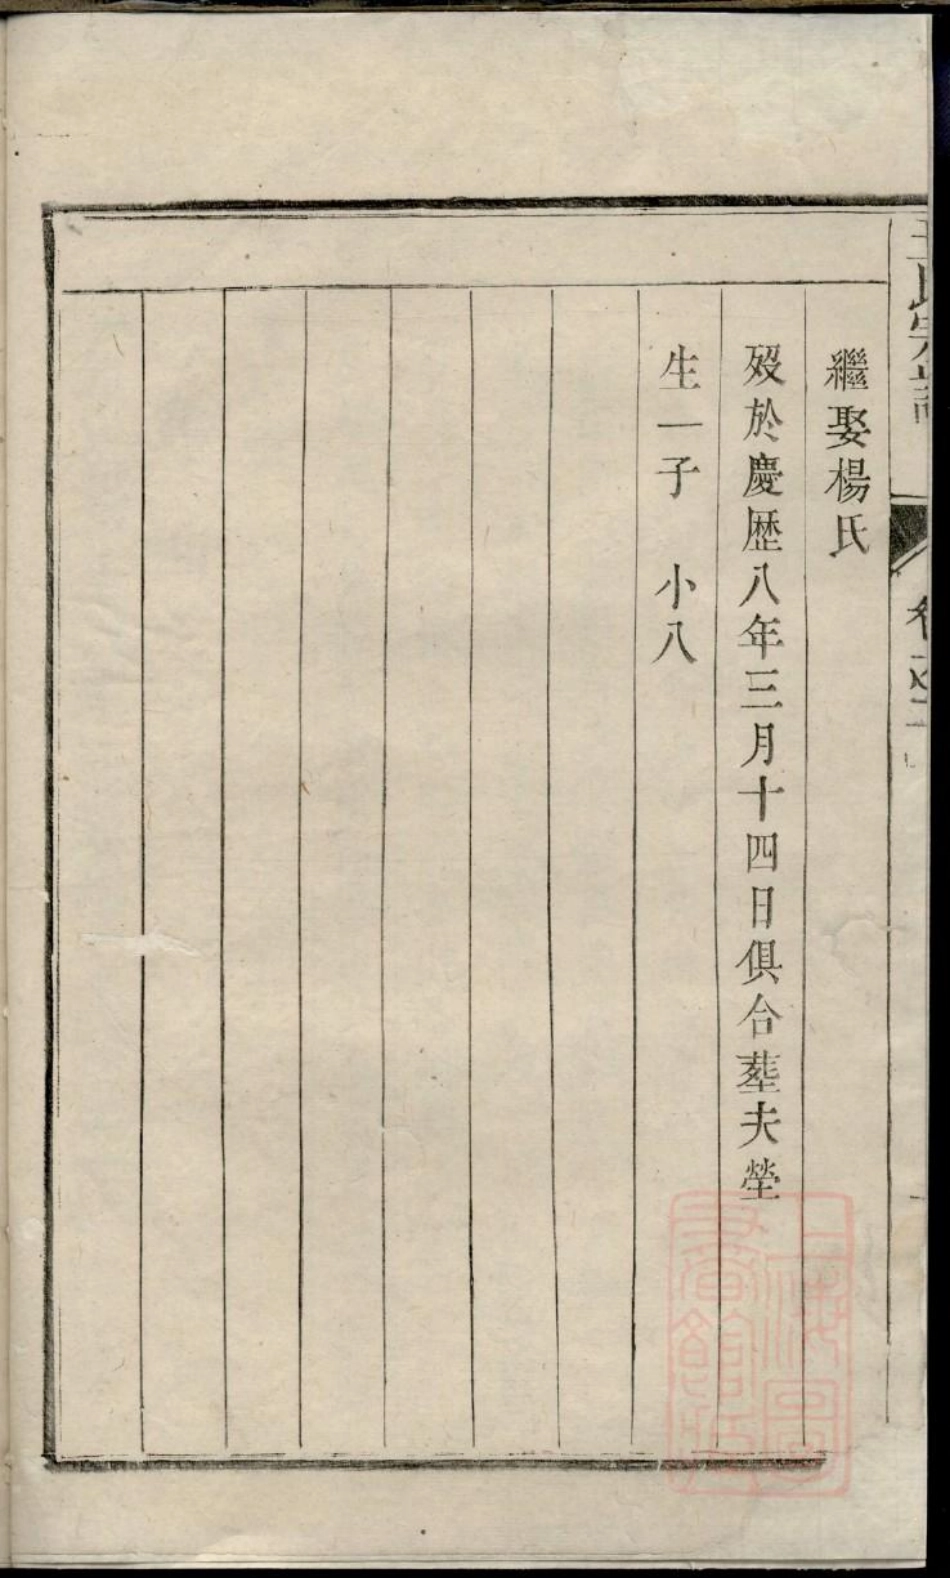 王氏宗譜
卷之二
繼娶楊氏
歿於慶歷八年三月十四日俱合塟夫塋
生一子　小八
上海圖書館藏